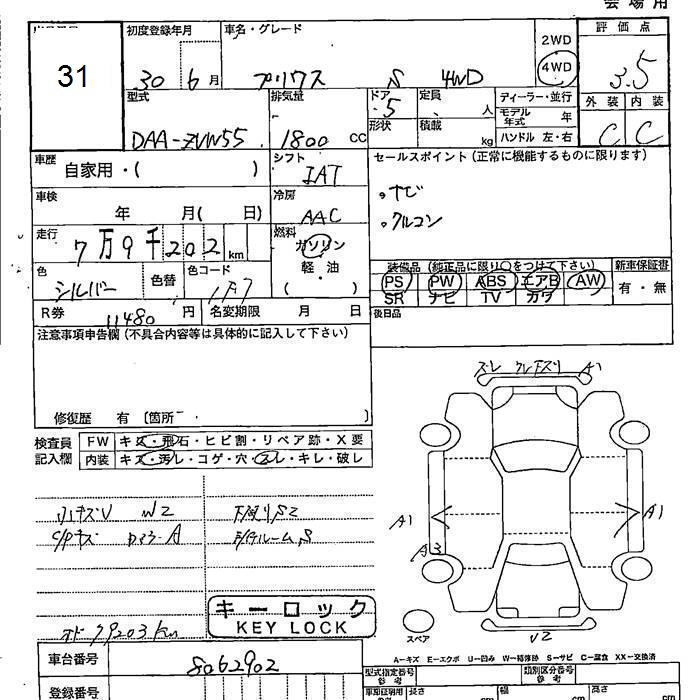 会場用
31
初度登録年月
30 6月
車名・グレード
プリウス S 4WD
2WD
4WD
評価点
3.5
外装 内装
C C
型式
DAA-ZVW55
排気量
1800 CC
ドア
5
形状
定員 人
積載 kg
ディーラー・並行
モデル年式 年
ハンドル 左・右
車歴 自家用・( )
シフト
IAT
セールスポイント(正常に機能するものに限ります)
。ナビ
。クルコン
車検 年 月( 日)
冷房
AAC
走行
7万9千202km
燃料
ガソリン
軽・油
( )
装備品(純正品に限り○をつけて下さい)
PS PW ABS エアB AW
SR ナビ TV カワ
新車保証書
有・無
色
シルバー
色替
色コード
1F7
R券 11480円
名変期限 月 日
後日品
注意事項申告欄(不具合内容等は具体的に記入して下さい)
修復歴 有 〔箇所 〕
検査員記入欄
FW キズ・飛石・ヒビ割・リペア跡・X要
内装 キズ・汚レ・コゲ・穴・スレ・キレ・破レ
ズレ A1
A1 A1
A3
V2
小キズV W2
下廻りS2
ルームS
オド 79203km
キーロック
KEY LOCK
スペア
A-キズ E-エクボ U-凹み W-補修跡 S-サビ C-腐食 XX-交換済
車台番号 8062902
型式指定番号 参考
類別区分番号 参考
登録番号
車庫証明用 長さ cm 幅 cm 高さ cm